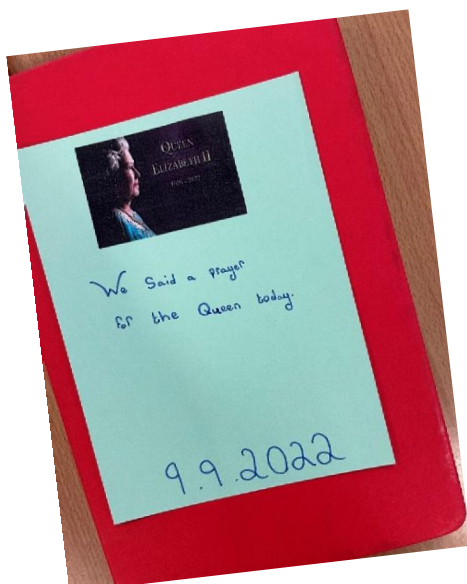 QUEEN
ELIZABETH II
1926-2022
We Said a prayer
for the Queen today.
9.9.2022